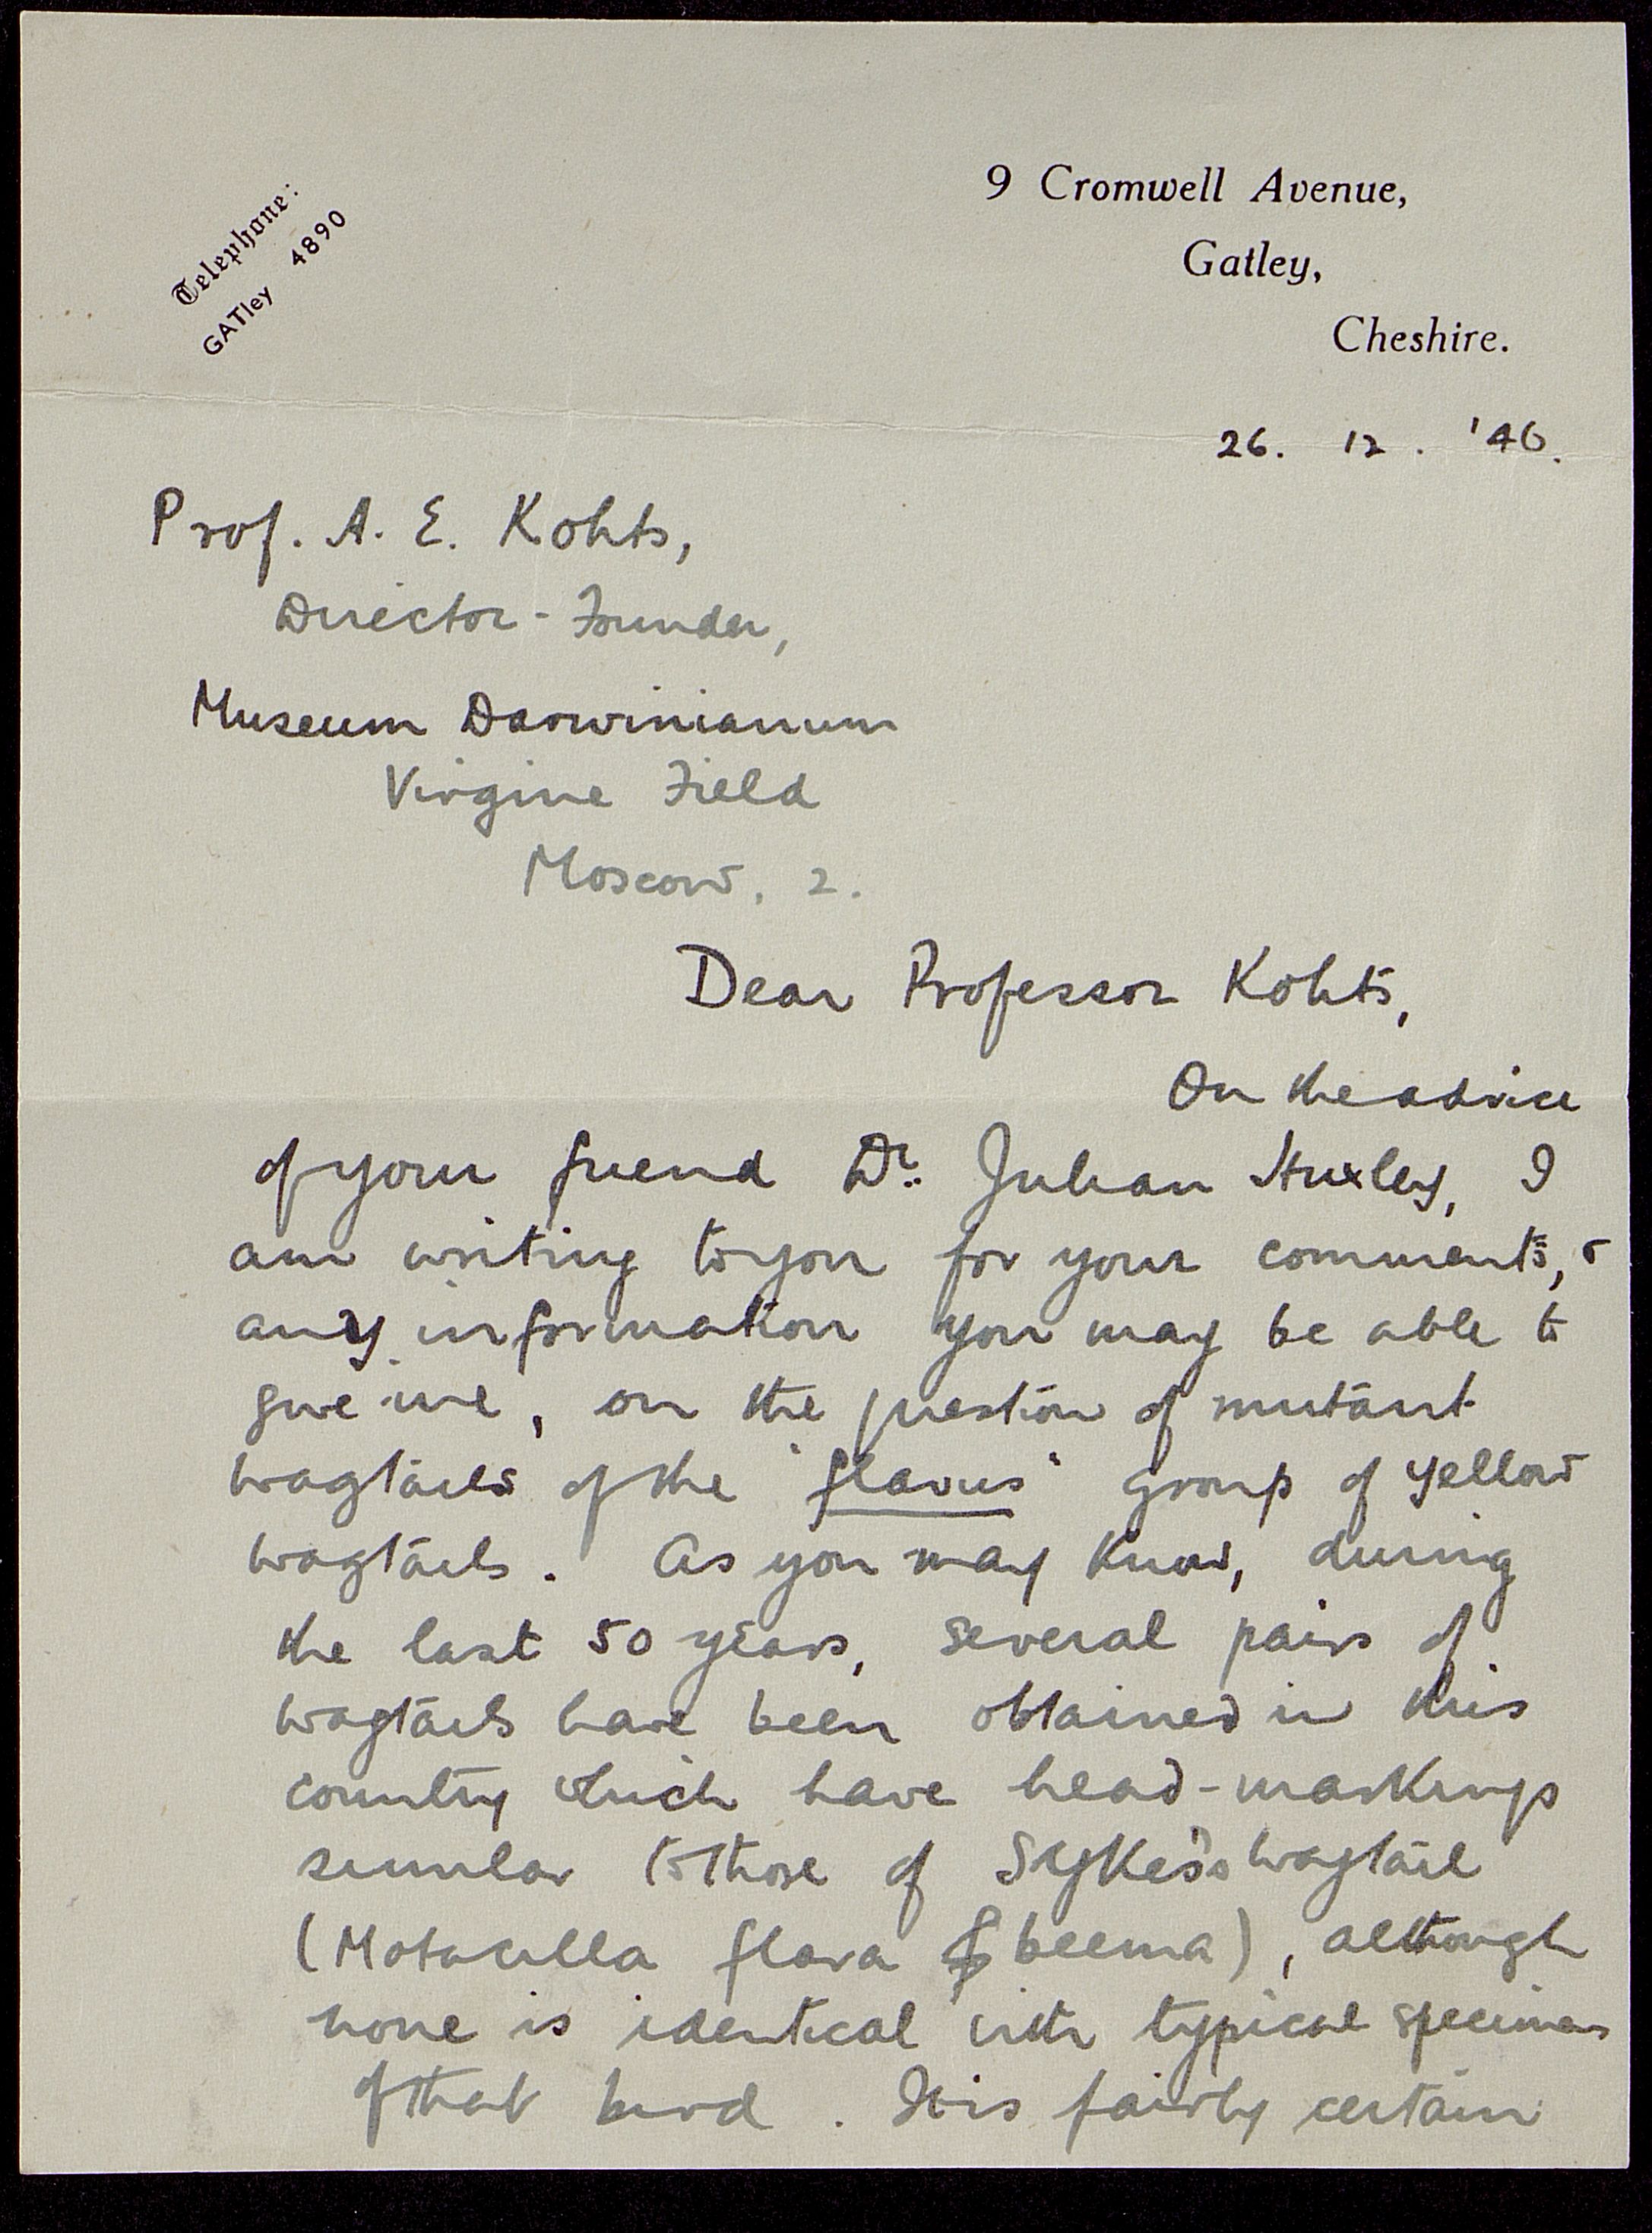 Telephone:
GATley 4890
9 Cromwell Avenue,
Gatley,
Cheshire.
26. 12. '46.
Prof. A. E. Kohts,
Director-Founder,
Museum Darwinianum
Virgine Field
Moscow, 2.
Dear Professor Kohts,
On the advice
of your friend Dr. Julian Huxley, I
am writing to you for your comments, &
any information you may be able to
give me, on the question of mutant
wagtails of the "flavus" group of yellow
wagtails. As you may know, during
the last 50 years, several pairs of
wagtails have been obtained in this
country which have head-markings
similar to those of Sykes's wagtail
(Motacilla flava beema), although
none is identical with typical specimens
of that bird. It is fairly certain